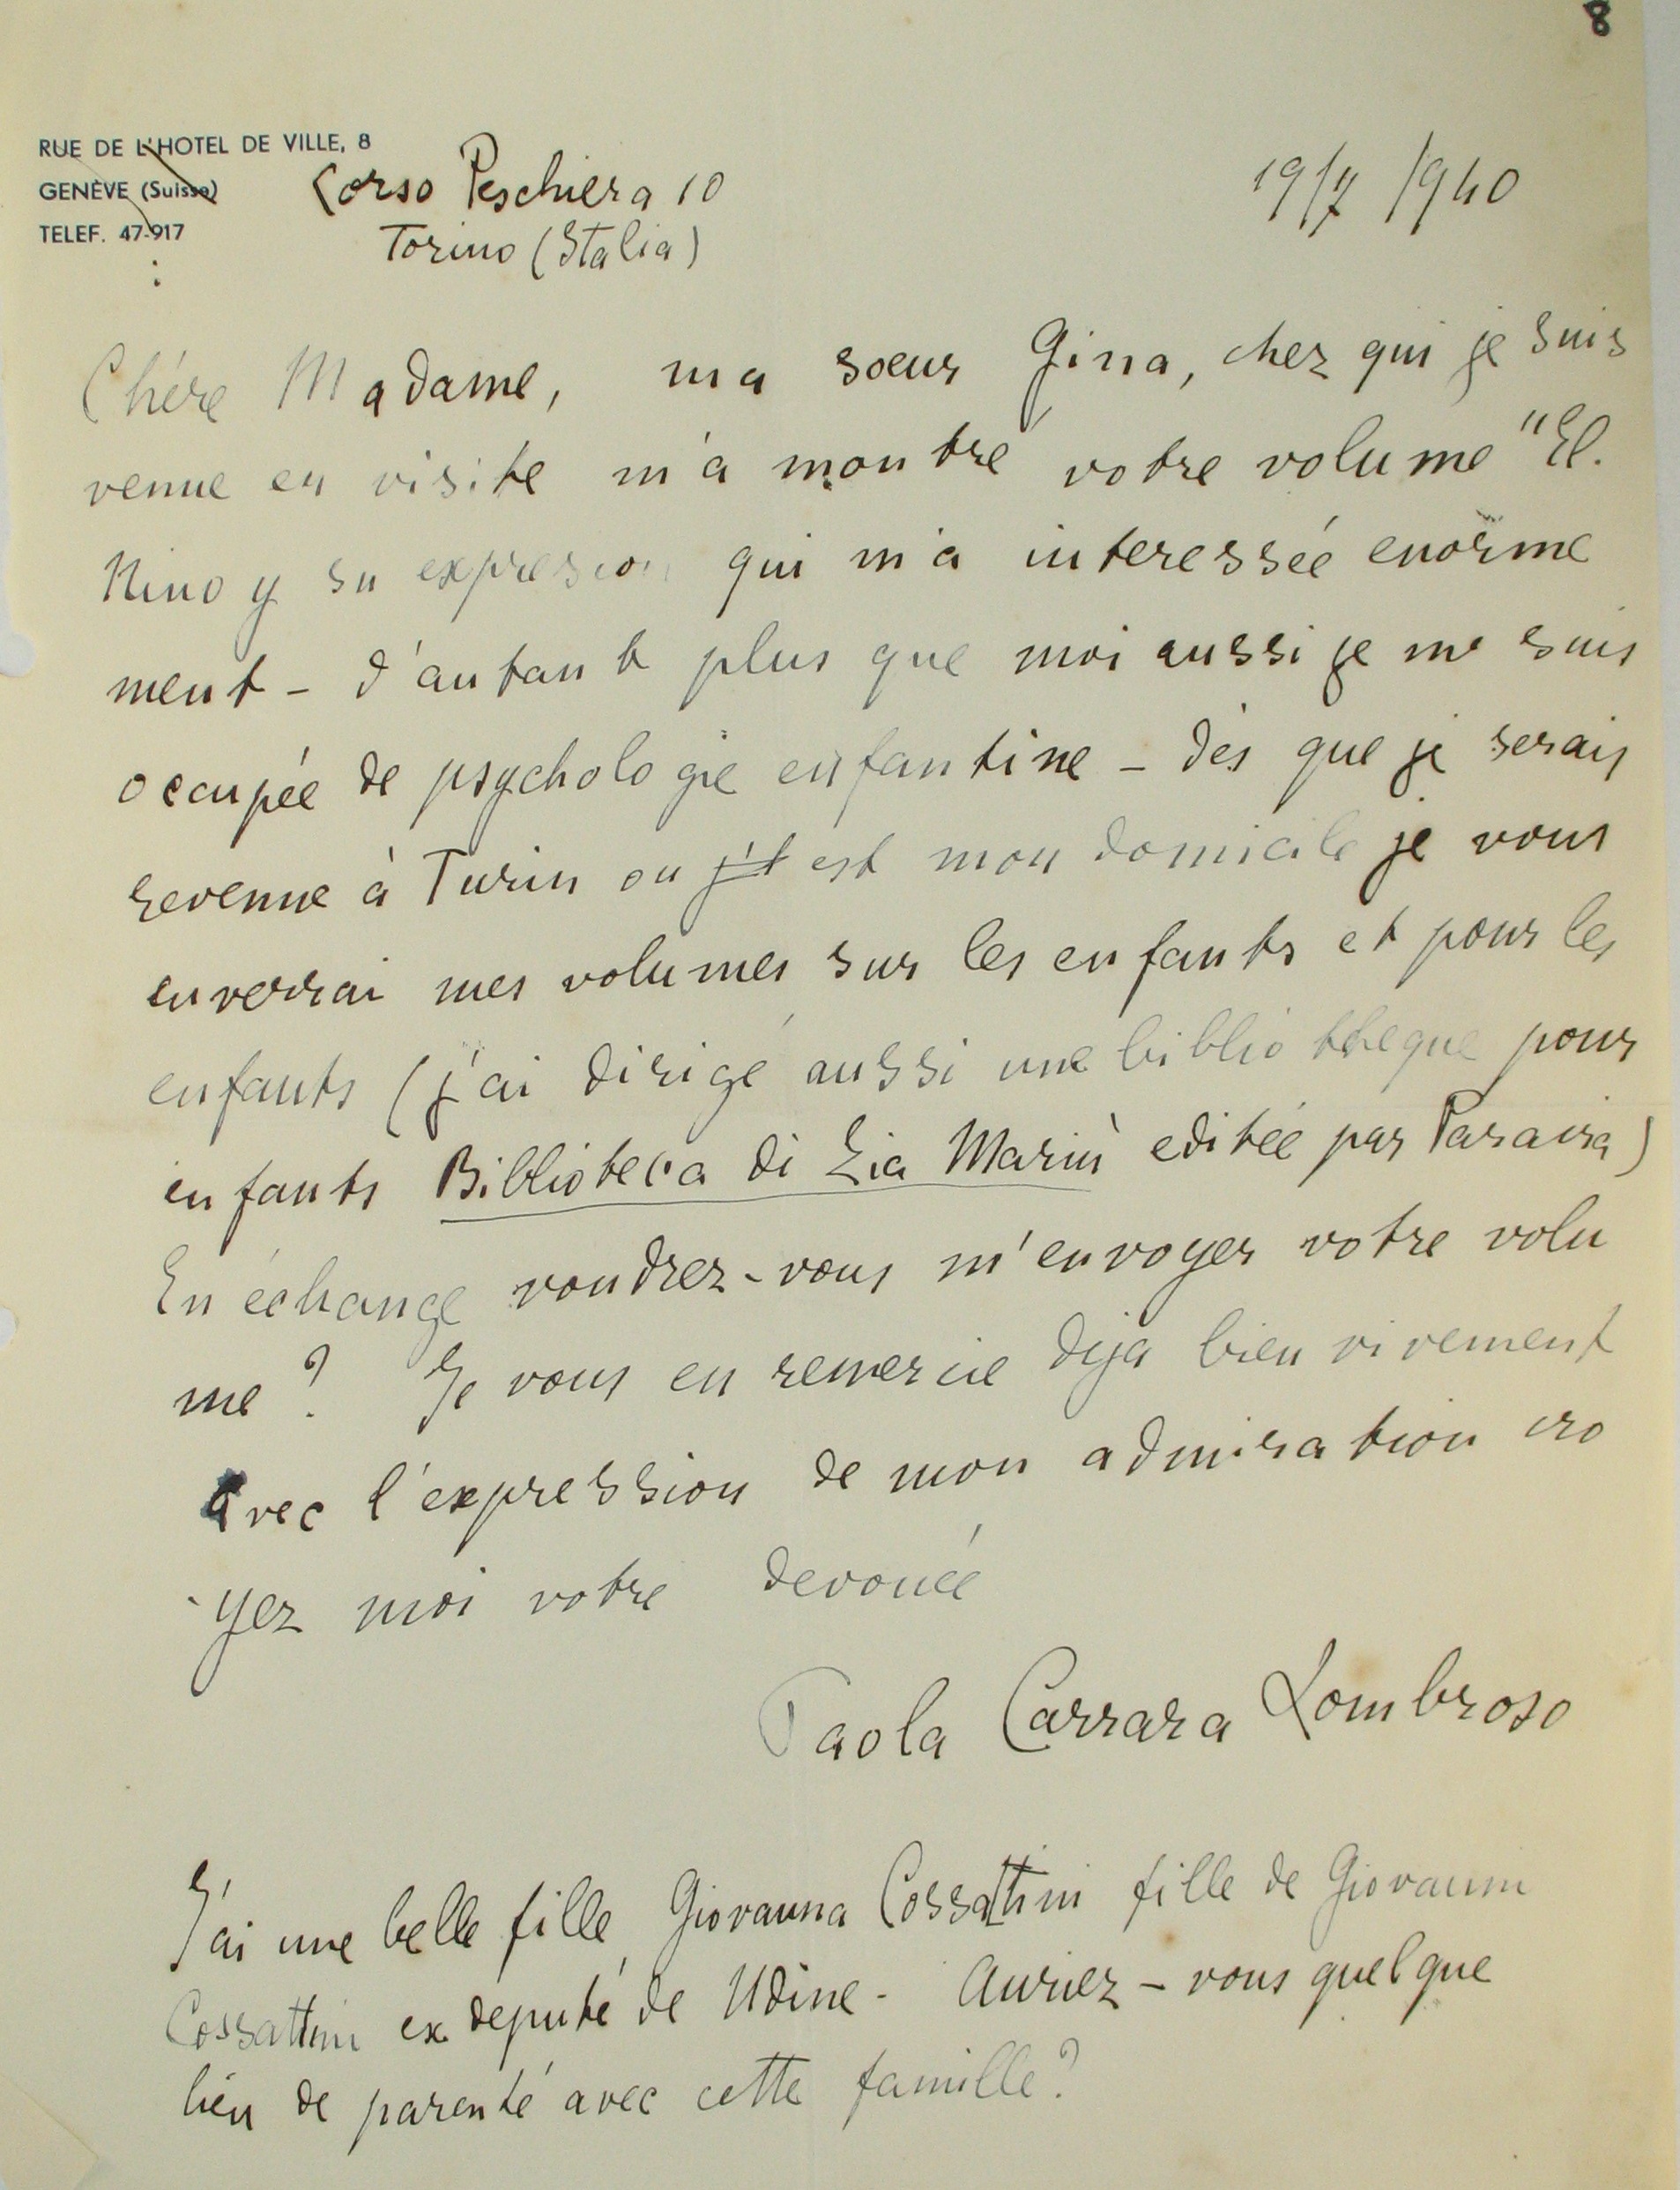 8
RUE DE L'HOTEL DE VILLE, 8
GENÈVE (Suisse)
TELEF. 47-917
Corso Peschiera 10
Torino (Italia)
19/7/940
Chére Madame, ma soeur Gina, chez qui je suis
venue en visite m'a montré votre volume "El.
Nino y su expresion qui m'a interessée enorme
ment - d'autant plus que moi aussi je me suis
occupée de psychologie enfantine - dès que je serais
revenue à Turin ou est mon domicile je vous
enverrai mes volumes sur les enfants et pour les
enfants (j'ai dirigé aussi une bibliotheque pour
enfants Biblioteca di Zia Mariù editée par Paravia)
En échange voudrez-vous m'envoyer votre volu
me ? Je vous en remercie deja bien vivement
avec l'expression de mon admiration cro
yez moi votre devouée
Paola Carrara Lombroso
J'ai une belle fille Giovanna Cossattini fille de Giovanni
Cossattini ex deputé de Udine - Auriez-vous quelque
lien de parenté avec cette famille?